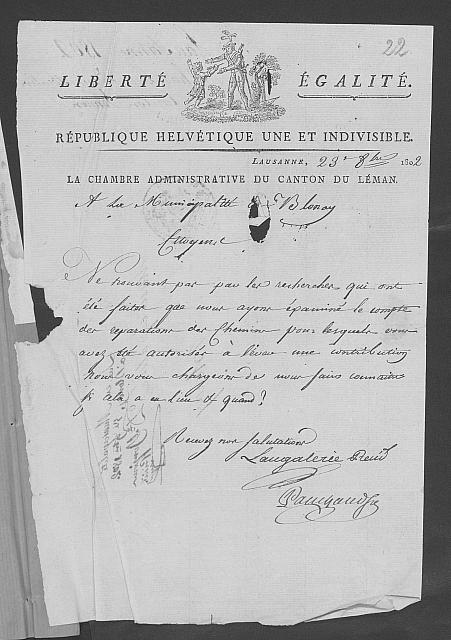 22
LIBERTÉ ÉGALITÉ.
RÉPUBLIQUE HELVÉTIQUE UNE ET INDIVISIBLE.
LAUSANNE, 23e 8bre 1802
LA CHAMBRE ADMINISTRATIVE DU CANTON DU LÉMAN.
A la Municipalité de Blonay
Citoyens
Ne trouvant pas par les recherches qui ont
été faites que nous ayons éxaminé le compte
des reparations des Chemins pour lesquels vous
avez été autorisés à lever une contribution
nous vous chargeons de nous faire connaitre
si cela a eu lieu & quand?
Recevez nos salutations
Langalerie Presid